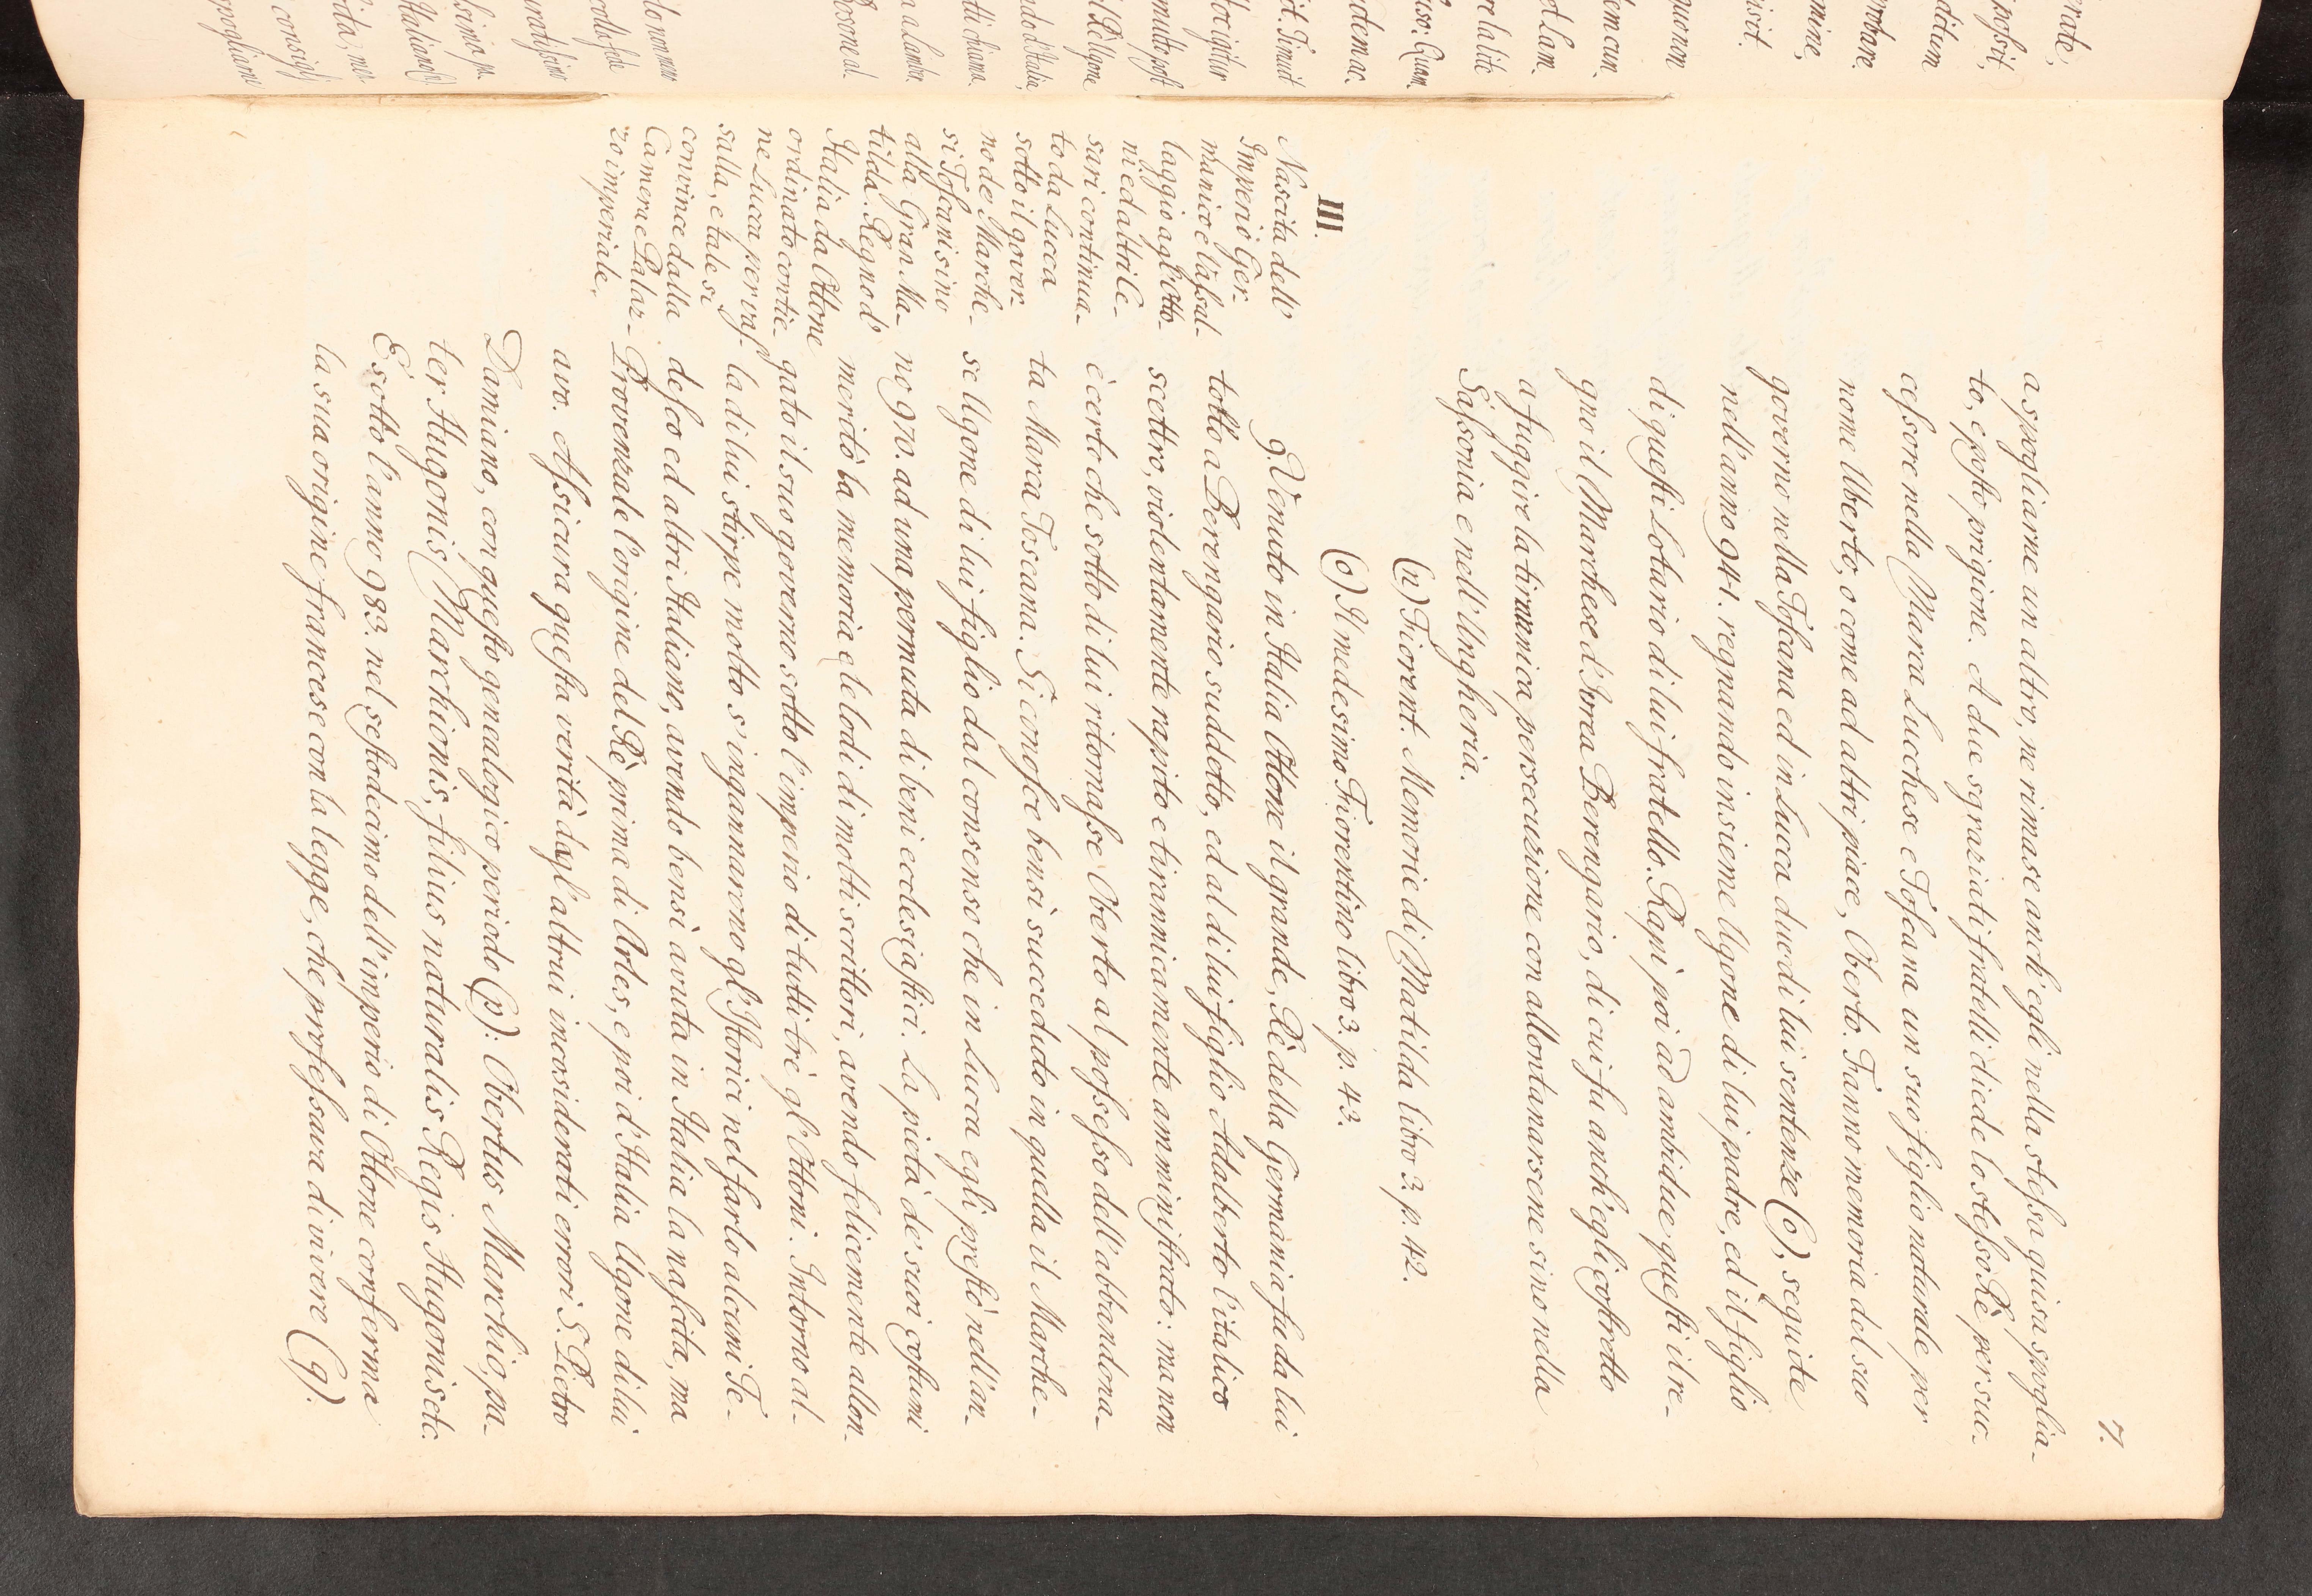 7.
a spogliarne un altro, ne rimase anch'egli nella stessa guisa spoglia-
to, e posto prigione. A due sgraziati fratelli diede lo stesso Rè per suc-
cessore nella Marca Lucchese e Toscana un suo figlio naturale per
nome Uberto, o come ad altri piace, Oberto. Fanno memoria del suo
governo nella Toscana ed in Lucca due di lui sentenze (o), seguite
nell'anno 941. regnando insieme Ugone di lui padre, ed il figlio
di questi Lotario di lui fratello. Rapì poi ad ambidue questi il re-
gno il Marchese d'Ivrea Berengario, di cui fu anch'egli costretto
a fuggire la tirannica persecuzione con allontanarsene sino nella
Sassonia e nell'Ungheria.
(n) Fiorent. Memorie di Matilda libro 3. p. 42.
(o) Il medesimo Fiorentino libro 3. p. 43.
III.
Nascita dell'
Imperio Ger-
manico e vassal-
laggio agl'Otto-
ni ed altri Ce-
sari continua-
to da Lucca
sotto il gover-
no de' Marche-
si Toscani sino
alla Gran Ma-
tilda. Regno d'
Italia da Ottone
ordinato contie-
ne Lucca per vas-
salla, e tale si
convince dalla
Camera e Palaz-
zo imperiale.
9. Venuto in Italia Ottone il grande, Rè della Germania fu da lui
tolto a Berengario suddetto, ed al di lui figlio Adalberto l'italico
scettro, violentamente rapito e tirannicamente amministrato: ma non
è certo che sotto di lui ritornasse Oberto al possesso dell'abbandona-
ta Marca Toscana. Si conosce bensì succeduto in quella il Marche-
se Ugone di lui figlio dal consenso che in Lucca egli prestò nell'an-
no 970. ad una permuta di beni ecclesiastici. La pietà de' suoi costumi
meritò la memoria e le lodi di molti scrittori, avendo felicemente allon-
gato il suo governo sotto l'imperio di tutti trè gl'Ottoni. Intorno al-
la di lui stirpe molto s'ingannarono gl'Istorici nel farlo alcuni Te-
desco ed altri Italiano, avendo bensì avuta in Italia la nascita, ma
Provenzale l'origine del Rè prima di Arles, e poi d'Italia Ugone di lui
avo. Assicura questa verità dagl'altrui inconsiderati errori S. Pietro
Damiano, con questo genealogico periodo (p): Obertus Marchio, pa-
ter Hugonis Marchionis, filius naturalis Regis Hugonis etc.
E sotto l'anno 983. nel sestodecimo dell'imperio di Ottone conferma
la sua origine francese con la legge, che professava di vivere (q).